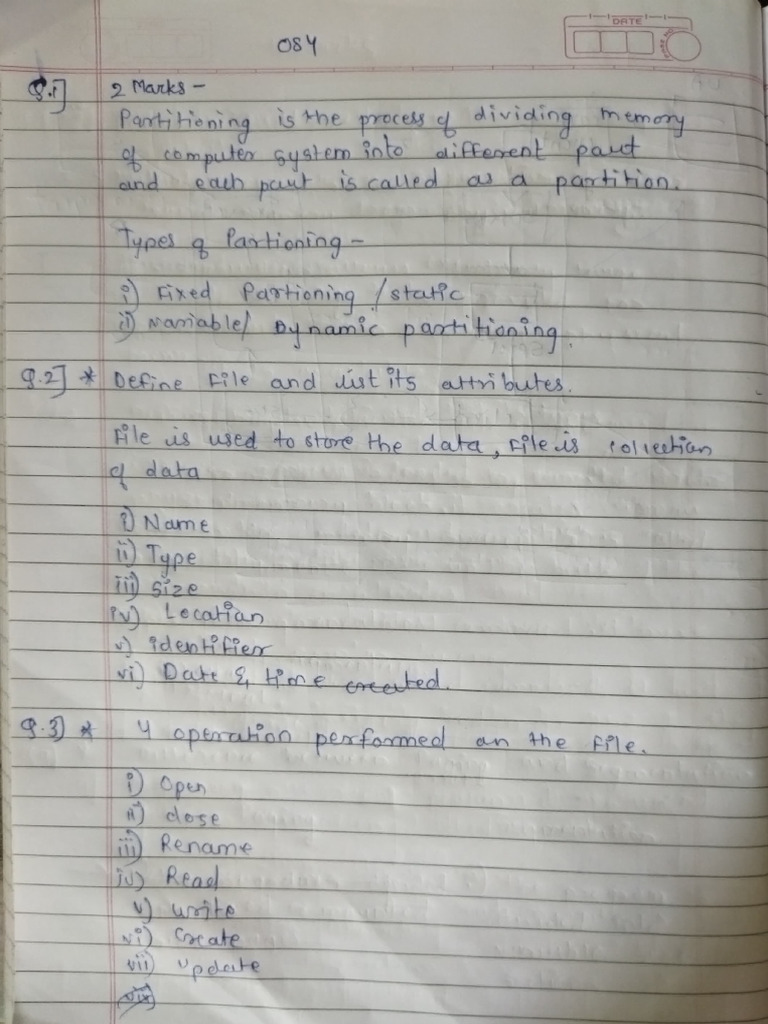 DATE
OSY
Q.1]
2 Marks -
Partitioning is the process of dividing memory
of computer system into different part
and each part is called as a partition.
Types of Partioning -
i) Fixed Partioning / static
ii) Variable/ Dynamic partitioning.
Q.2] * Define File and list its attributes.
File is used to store the data, File is collection
of data
i) Name
ii) Type
iii) Size
iv) Location
v) identifier
vi) Date & time created.
Q.3) * 4 operation performed on the File.
i) Open
ii) close
iii) Rename
iv) Read
v) write
vi) Create
vii) update